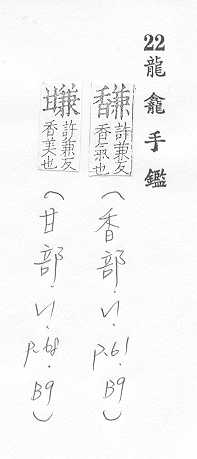 22龍龕手鑑
馦許兼反香氣也(香部.V1.P.61.B9)
𤯌許兼反香美也(甘部.V1.P.68.B9)